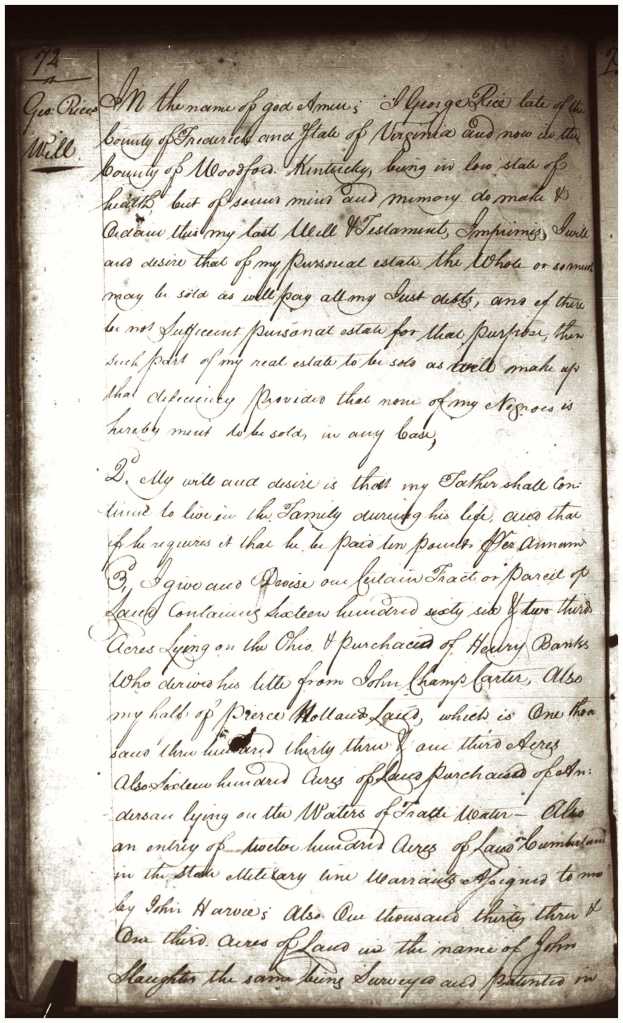 72
Geo. Rices
Will.
IN the name of god Amen; I George Rice late of the
County of Frederick and State of Virginia and now in the
County of Woodford Kentucky, being in low state of
health but of sound mind and memory do make &
Ordain this my last Will & Testament, Imprimis, I will
and desire that of my pursonal estate the Whole or so much
may be sold as will pay all my Just debts, and if there
be not Sufficient pursonal estate for that purpose, then
such part of my real estate to be sold as will make up
that deficiency provided that none of my Negroes is
hereby ment to be sold, in any Case,
2d. My will and desire is that my Father shall con:
tinue to live in the Family during his life, and that
if he requires it that he be paid ten pounds Per Annum
3, I give and Devise one Certain Tract or parcil of
Land Containing Sixteen hundred sixty six & two third
Acres Lying on the Ohio & purchaced of Henry Banks
Who derived his title from John Champ Carter, Also
my half of Pierce Holland Land, which is One thou
sand three hundred thirty three & one third Acres
Also Sixteen hundred Acres of Land purchased of An:
derson lying on the Waters of Trade Water - Also
an entry of twelve hundred Acres of Land on Cumberland
in the State Military line Warrants Assigned to me
by John Harvie; Also One thousand thirty three &
One third Acres of Land in the name of John
Slaughter the same being Surveyed and patented in